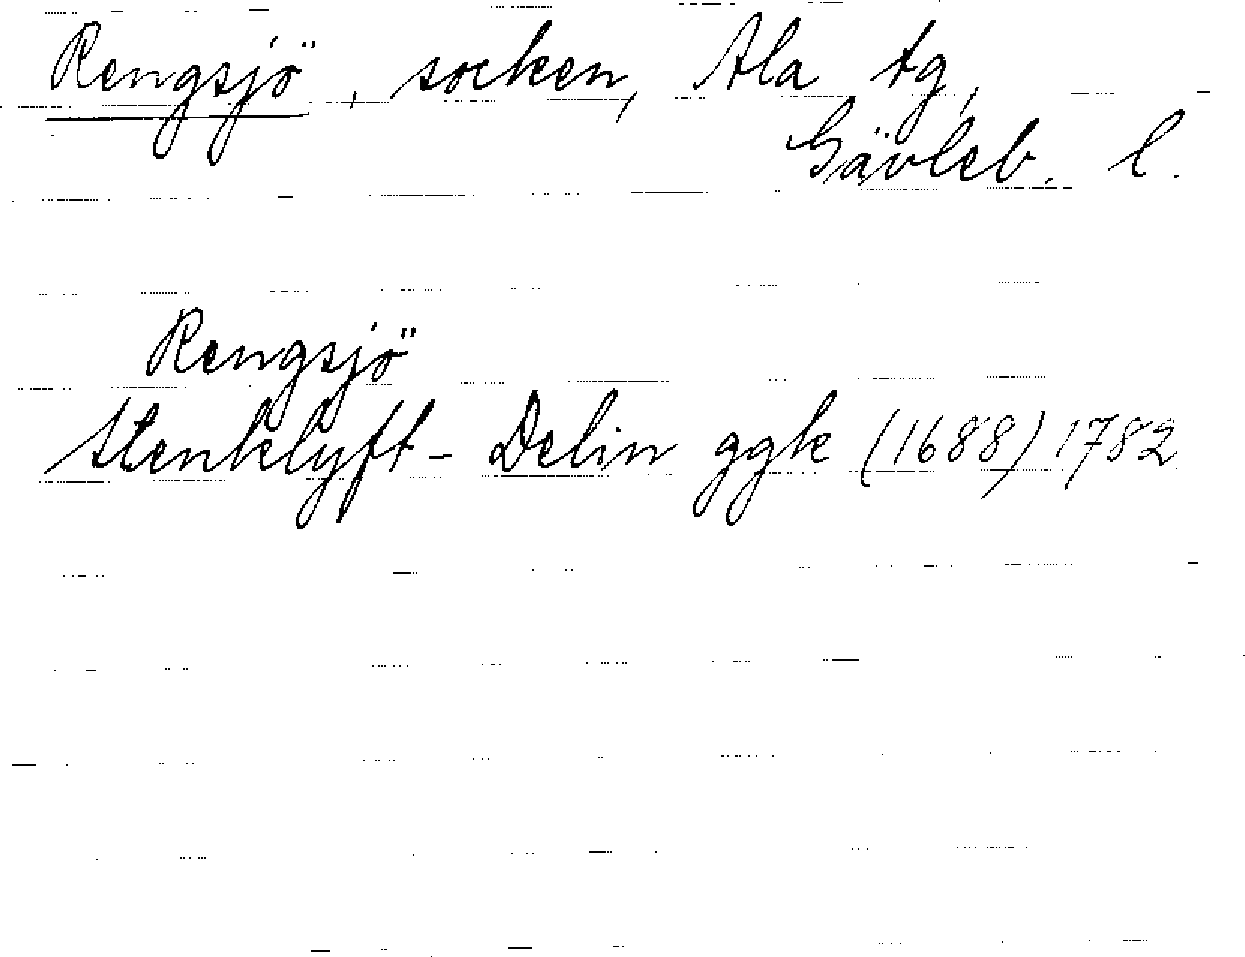 Rengsjö, socken, Ala tg,
Gävleb. l.
Rengsjö
Stenklyft - Delin ggk (1688) 1782